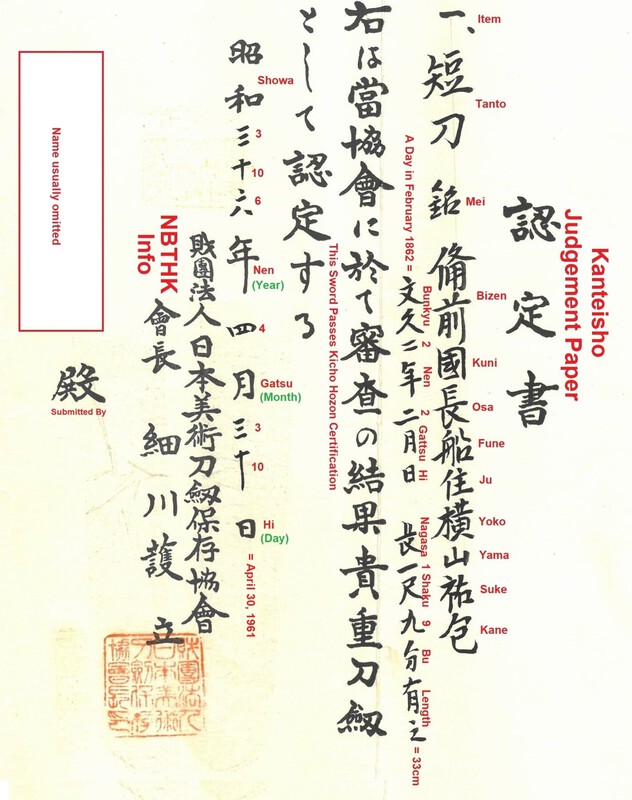 Kanteisho
Judgement Paper
認定書
一、短刀 銘 備前國長船住横山祐包
Item
Tanto
Mei
Bizen
Kuni
Osa
Fune
Ju
Yoko
Yama
Suke
Kane
文久二年二月日 長一尺九分有之
A Day in February 1862 =
Bunkyu 2 Nen 2 Gattsu Hi
Nagasa 1 Shaku 9 Bu Length
= 33cm
右は當協會に於て審査の結果貴重刀劔
として認定する
This Sword Passes Kicho Hozon Certification
昭和三十六年四月三十日
Showa
3
10
6
Nen
(Year)
4
Gatsu
(Month)
3
10
Hi
(Day)
= April 30, 1961
財團法人日本美術刀劔保存協會
會長 細川護立
NBTHK
Info
殿
Submitted By
Name usually omitted